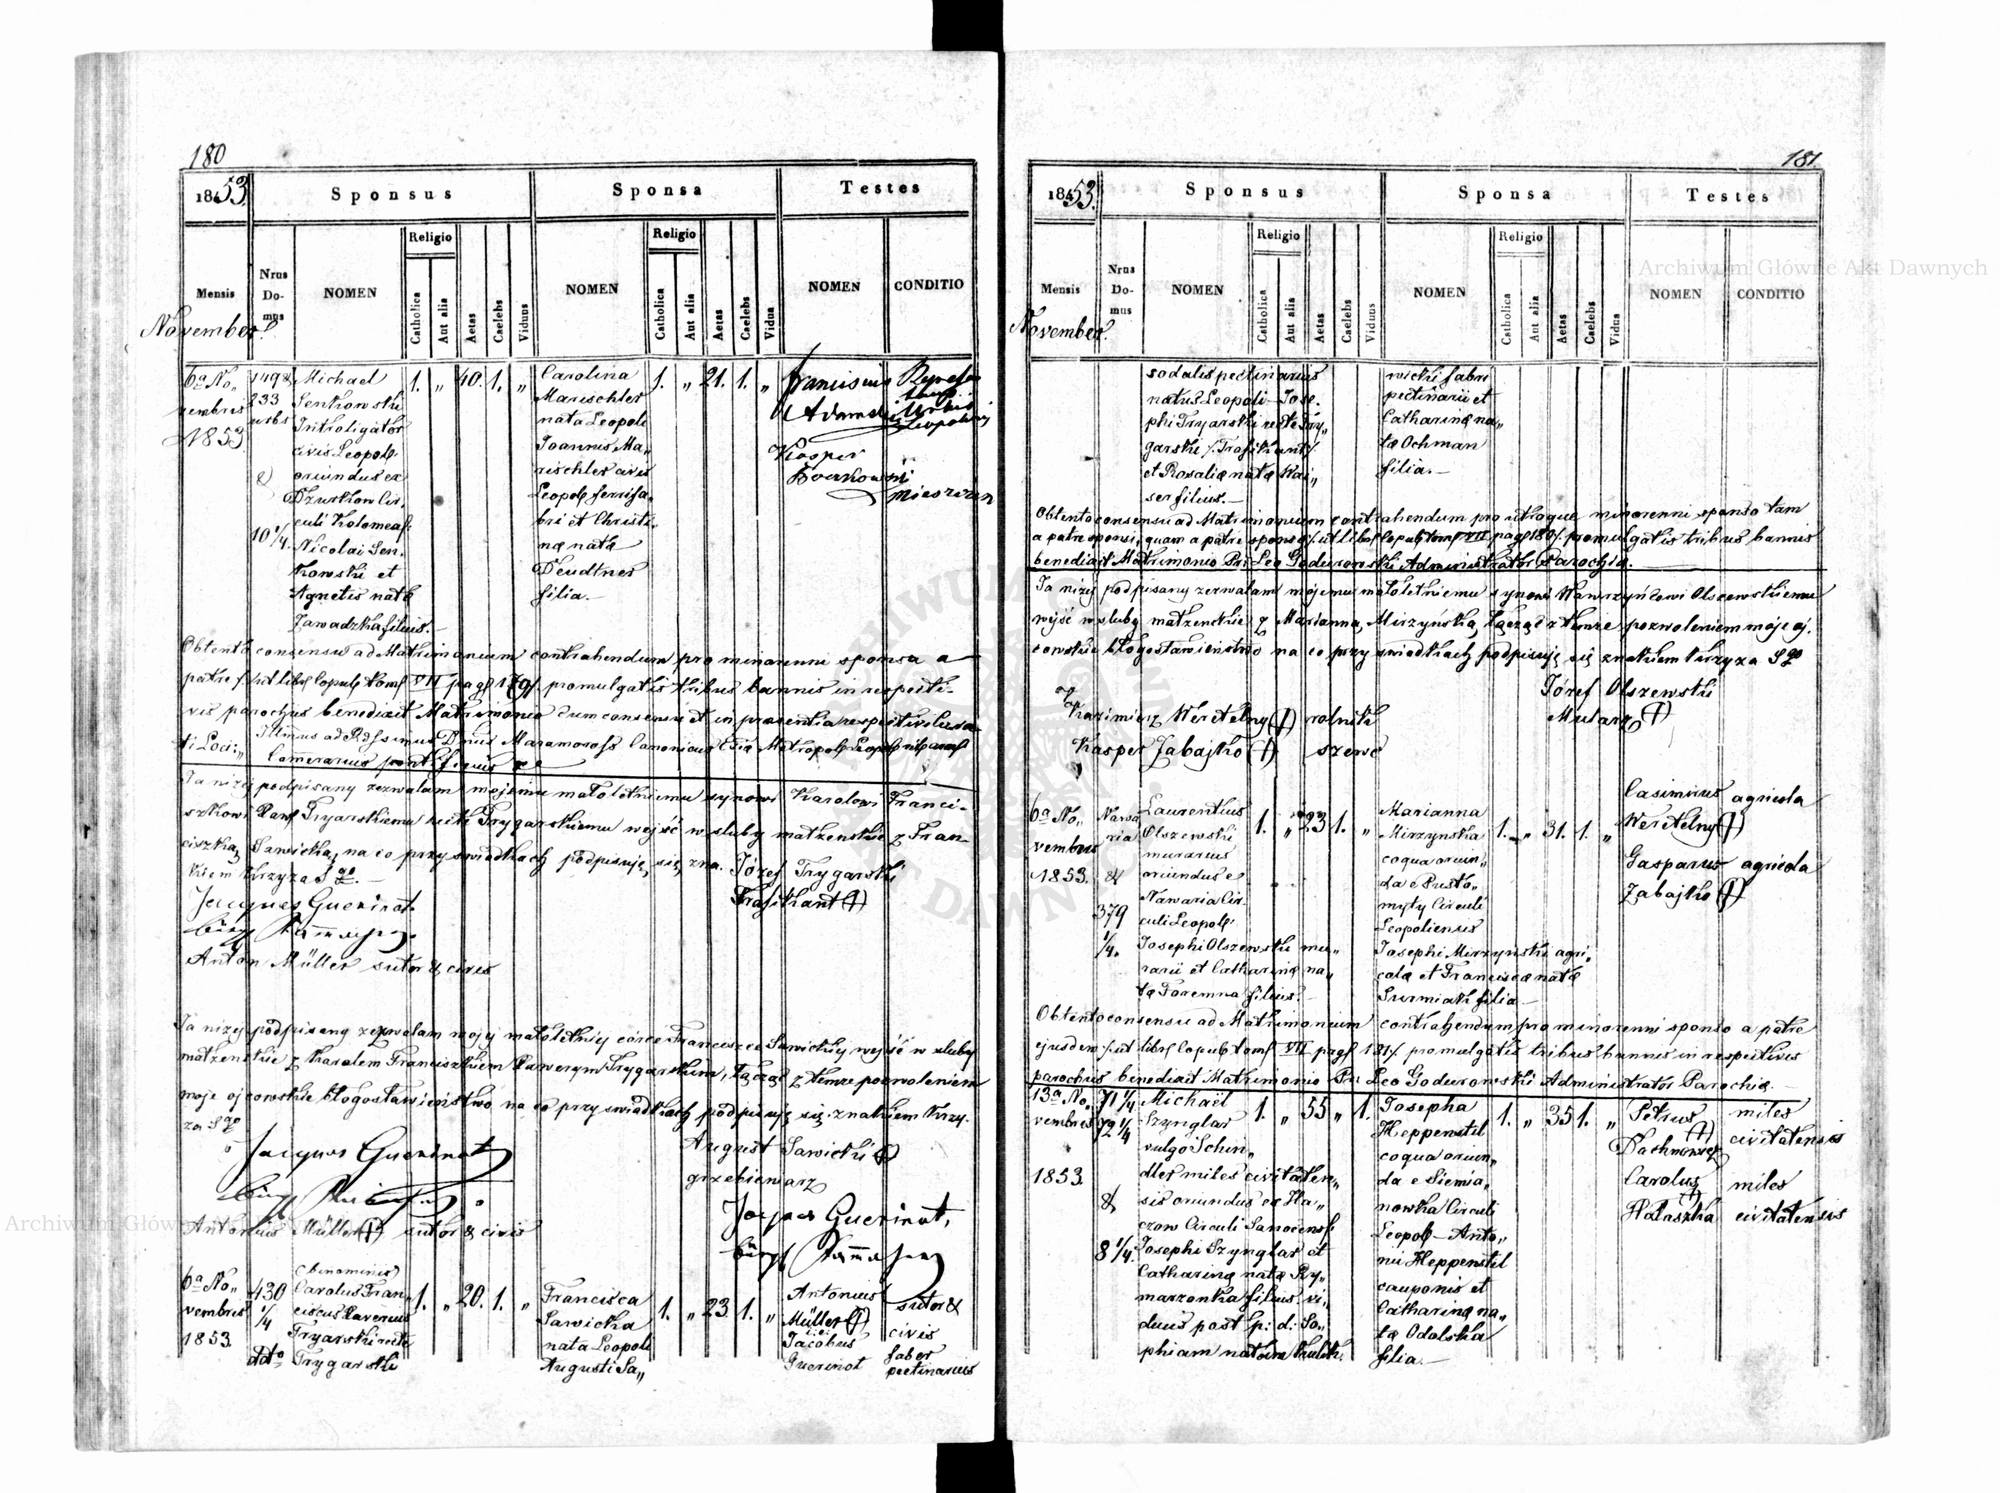 180
1853
Sponsus
Sponsa
Testes
Mensis
Nrus Domus
NOMEN
Religio
Catholica
Aut alia
Aetas
Caelebs
Viduus
NOMEN
Religio
Catholica
Aut alia
Aetas
Caelebs
Vidua
NOMEN
CONDITIO
November
6a No„
vembris
1853
149 &
233
urbs
&
10 1/4.
Michael
Senkowski
Introligator
civis Leopol:
oriundus ex
Dzurkow Cir„
culi Kolomeaf:
Nicolai Sen„
kowski et
Agnetis natæ
Zawadzka filius.—
1. „ 40. 1. „
Carolina
Marischler
nata Leopoli
Joannis Ma„
rischler civis
Leopol: ferrifa„
bri et Christi„
næ natæ
Deudtner
filia.—
1. „ 21. 1. „
Franciscus
Adamski
Kasper
mieszczan
Obtento consensu ad Matrimonium contrahendum pro minorenni sponsa a
patre /: ut libf copulf tomf VII pagf 179/. promulgatis tribus bannis in respecti„
vis parochus benedixit Matrimonio cum consensu et in præsentia respectivi Cura
ti Loci:„
Camerarius pontificius
Ja niżej podpisany zezwalam mojemu małoletniemu synowi Karolowi Franci„
szkowi Xawf Tryarskiemu recte Trygarskiemu wejść w śluby małżeńskie z Fran„
ciszką Sawicką, na co przy świadkach podpisuję się zna„
kiem krzyża Sgo.—
Józef Trygarski
Trafikant (†)
Jacques Guerinot
bürgl
Anton Müller sutor & civis
Ja niżej podpisany zezwalam mojej małoletniej córce Franciszce Sawickiej wejść w śluby
małżeńskie z Karolem Franciszkiem Xawerym Trygarskim, łącząc z temże pozwoleniem
moje ojcowskie błogosławieństwo na co przy świadkach podpisuję się znakiem krzy„
ża Sgo
August Sawicki (†)
grzebieniarz
Jacques Guerinot
bürgl
Antonius Müller (†) sutor & civis
Jacques Guerinot,
bürgl
6a No„
vembris
1853.
430
1/4
ddo
(binominis)
Carolus Fran„
ciscus Xaverius
Tryarski recte
Trygarski
1. „ 20. 1. „
Francisca
Sawicka
nata Leopoli
Augusti Sa„
1. „ 23. 1. „
Antonius
Müller (†)
Jacobus
Guerinot
sutor &
civis
faber
pectinarius
181
1853.
Sponsus
Sponsa
Testes
Mensis
Nrus Domus
NOMEN
Religio
Catholica
Aut alia
Aetas
Caelebs
Viduus
NOMEN
Religio
Catholica
Aut alia
Aetas
Caelebs
Vidua
NOMEN
CONDITIO
November.
sodalis pectinarius
natus Leopoli Jose„
phi Tryarski recte Try„
garski /: Trafikant/.
et Rosaliæ natæ Kai„
ser filius.—
wicki fabri
pectinarii et
Catharinæ na„
tæ Ochman
filia.—
Obtento consensu ad Matrimonium contrahendum pro utroque minorenni sponso tam
a patre sponsi, quam a patre sponsæ /: ut libf copulf tomf VII pagf 180/. promulgatis tribus bannis
benedixit Matrimonio Pr: Leo Godurowski Administrator Parochiæ.
Ja niżej podpisany zezwalam mojemu małoletniemu synowi Wawrzyńcowi Olszewskiemu
wejść w śluby małżeńskie z Marianną Mirzyńską, łącząc z temże pozwoleniem moje oj„
cowskie błogosławieństwo na co przy świadkach podpisuję się znakiem krzyża Sgo
Józef Olszewski
Mularz (†)
Kazimierz Weretelny (†) rolnik
Kasper Zabajko (†) szewc
6a No„
vembris
1853.
Nawa
ria
&
379
1/4.
Laurentius
Olszewski
murarius
oriundus e
Nawaria Cir„
culi Leopol:
Josephi Olszewski mu„
rarii et Catharinæ na„
tæ Foremna filius.—
1. „ 23 1. „
Marianna
Mirzynska
coqua oriun„
da e Pusto„
myty Circuli
Leopoliensis
Josephi Mirzynski agri„
colæ et Franciscæ natæ
Surmiak filia.—
1. „ 31. 1. „
Casimirus
Weretelny (†)
Gasparus
Zabajko (†)
agricola
agricola
Obtento consensu ad Matrimonium contrahendum pro minorenni sponso a patre
ejusdem /: ut libf copulf tomf VII pagf 181/. promulgatis tribus bannis in respectivis
parochus benedixit Matrimonio Pr: Leo Godurowski Administrator Parochiæ.—
13a No„
vembris
1853.
71 1/4
72 1/4
&
8 1/4.
Michael
Szynglar
vulgo Schin„
dler miles civitaten„
sis oriundus ex Ha„
czow Circuli Sanocensf
Josephi Szynglar et
Catharinæ natæ Ry„
marzonka filius. vi„
duus post p: d: So„
phiam natam Kulik
1. „ 55 „ 1.
Josepha
Heppenstil
coqua oriun„
da e Siemia„
nowka Circuli
Leopol— Anto„
nii Heppenstil
cauponis et
Catharinæ na„
tæ Odolska
filia.—
1. „ 35 1. „
Petrus (†)
Dachnowicz
Carolus (†)
Hałaszka
miles
civitatensis
miles
civitatensis
Archiwum Główne Akt Dawnych
Archiwum Główne Akt Dawnych